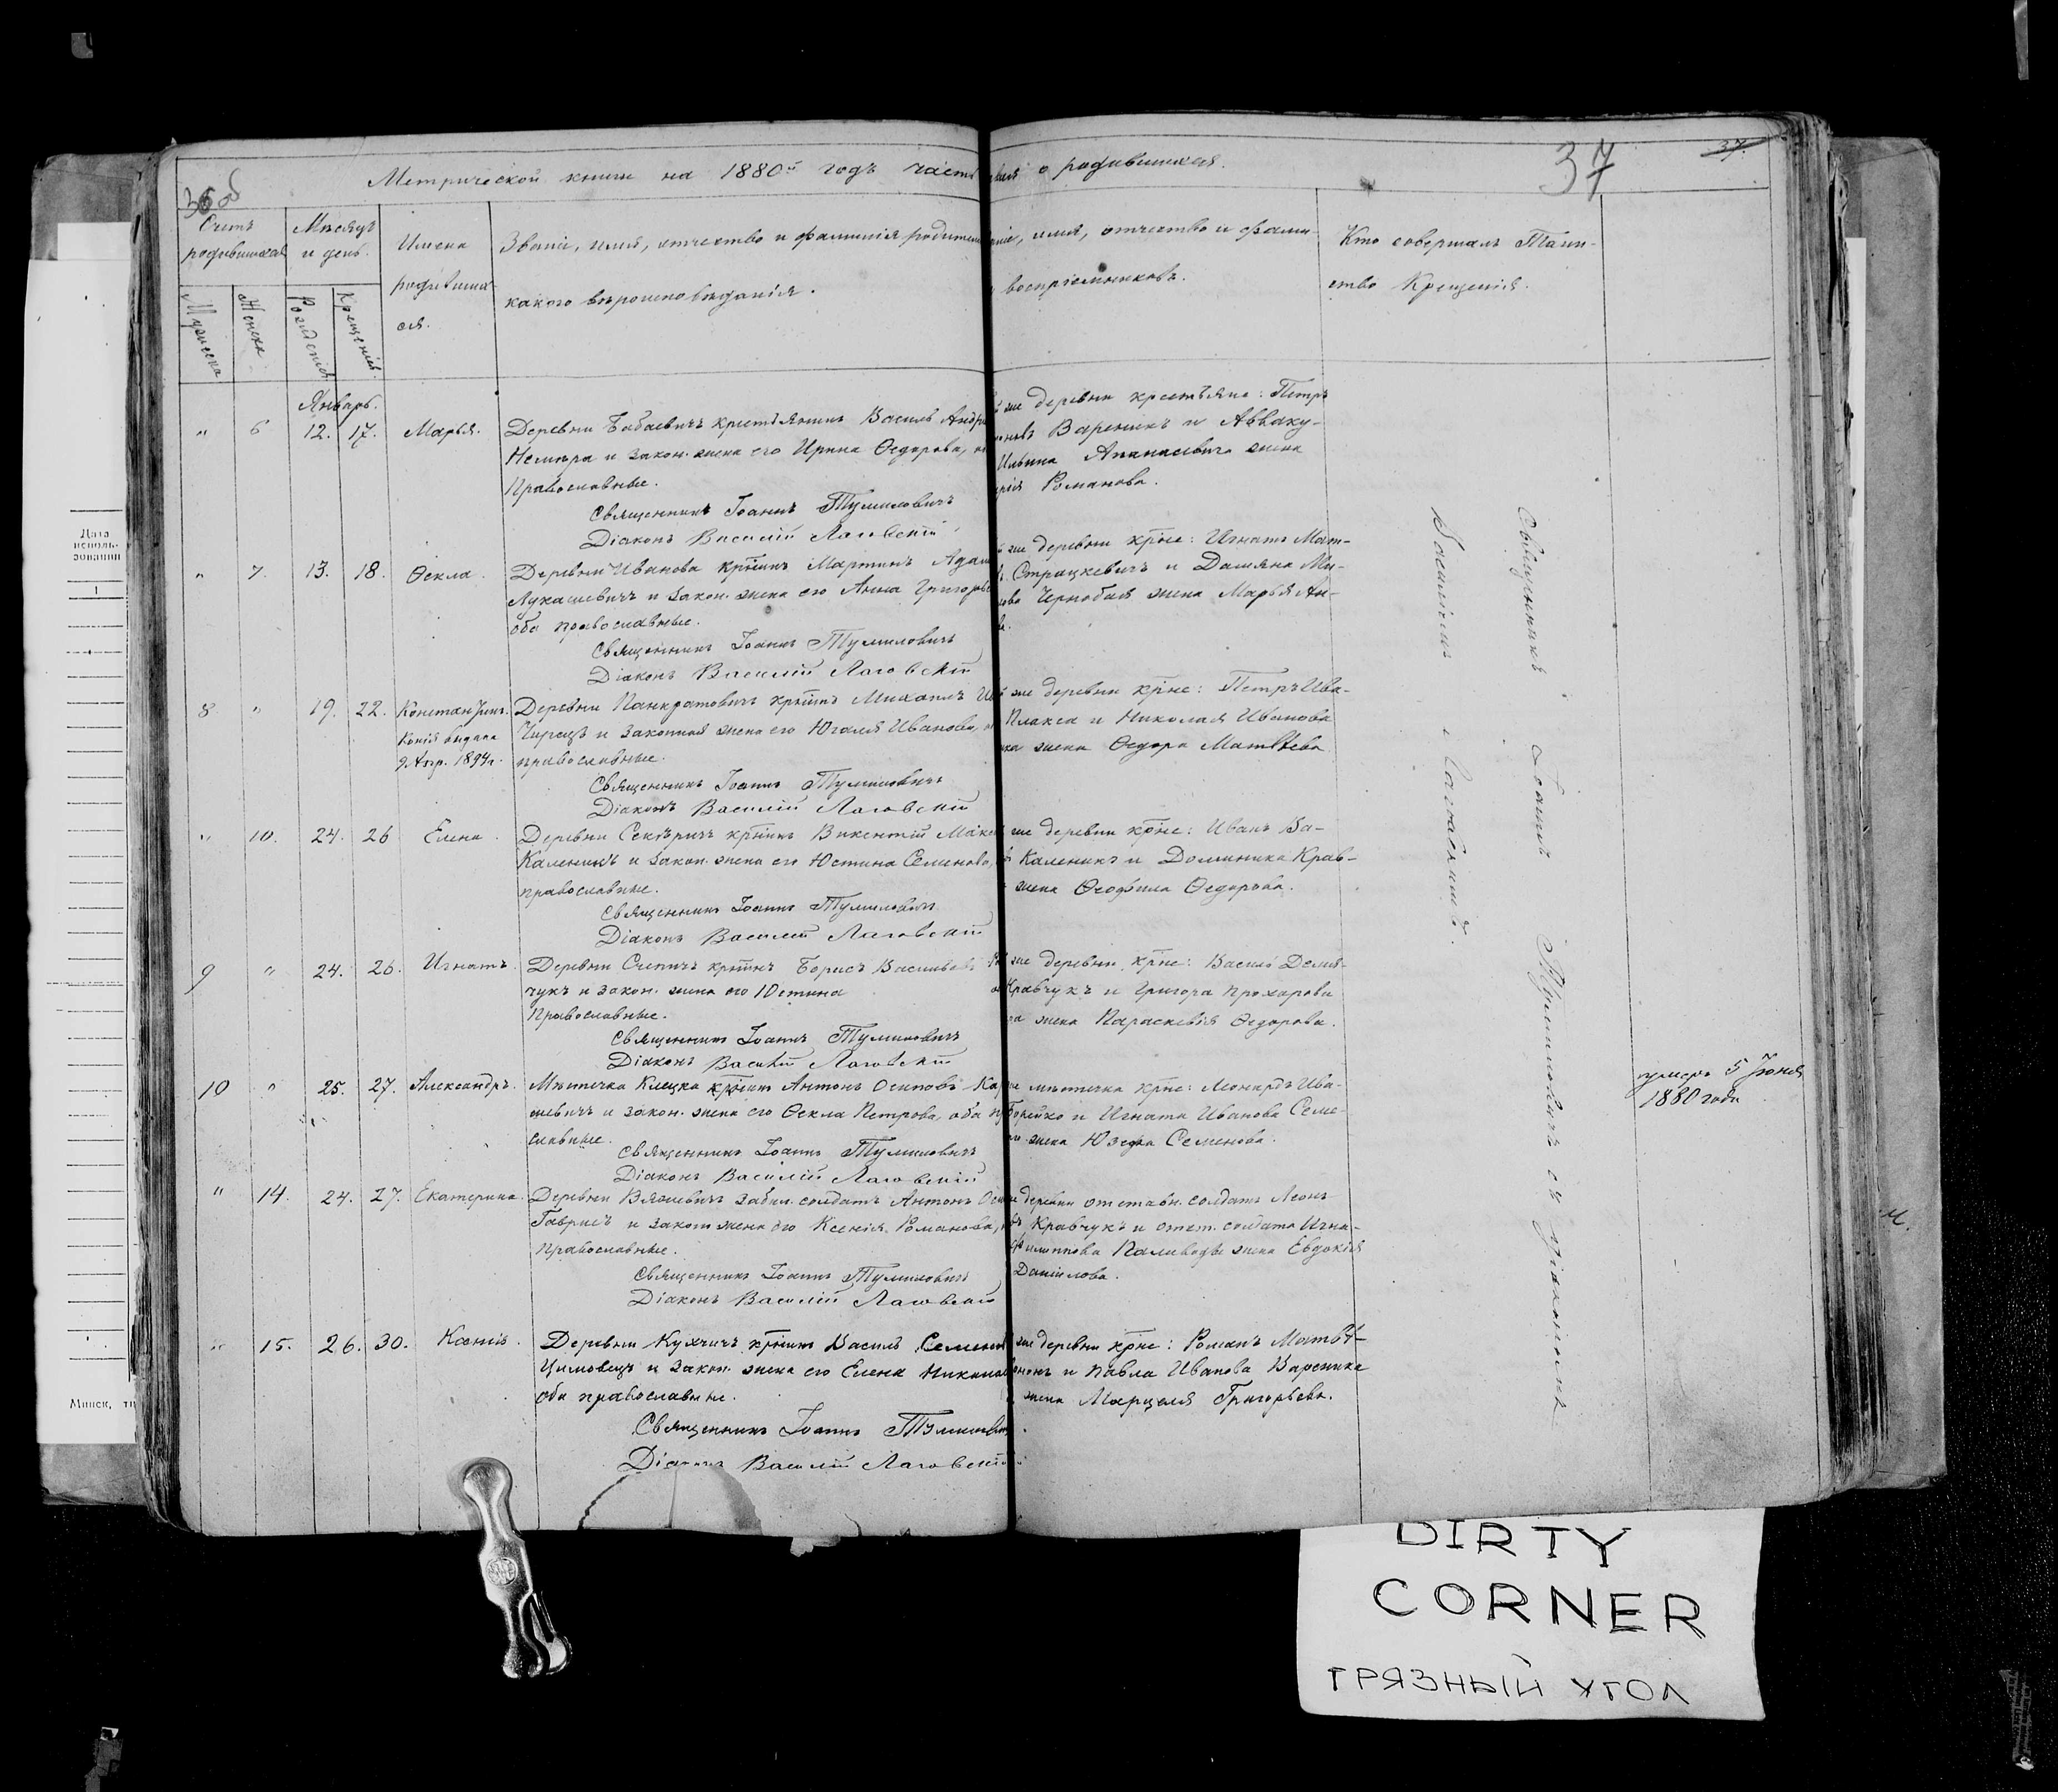 36 об
Метрической книги на 1880й годъ часть
о родившихся.
37
37.
Счетъ родившихся
Мѣсяцъ и день.
Имена
родивших
ся.
Званіе, имя, отчество и фамилія родител
какого вѣроисповѣданія.
Мужеска
Женска
Рожденія
Крещенія.
имя, отчество и фами-
воспріемниковъ.
Кто совершалъ Таин-
ство Крещенія.
Январь.
" 6 12. 17. Марья.
Деревни Бабаевичъ крестьянинъ Василь Андре
Немира и закон. жена его Ирина Ѳедорова,
Православные.
Священникъ Іоаннъ Тумиловичъ
Діаконъ Василій Лаговскій
же деревни крестьяне: Петръ
Вареникъ и Авваку-
Ильина Апанасевича жена
Романова.
" 7. 13. 18. Ѳекла.
Деревни Иванова кр̃нинъ Мартинъ Адам
Лукашевичъ и закон. жена его Анна Григорье
оба православные.
Священникъ Іоаннъ Тумиловичъ
Діаконъ Василій Лаговскій
же деревни кр̃не: Игнатъ Мат-
Страцкевичъ и Даміяна Ми-
Чернобая жена Марья Ан-
8 " 19. 22. Константинъ.
Копія выдана
9 Апр. 1894 г.
Деревни Панкратовичъ кр̃нинъ Михаилъ
и законная жена его Югалія Иванова,
православные.
Священникъ Іоаннъ Тумиловичъ
Діаконъ Василій Лаговскій
же деревни кр̃не: Петръ Ива-
Плакса и Николая Иванова
жена Ѳедора Матвѣева
" 10. 24. 26 Елена.
Деревни кр̃нинъ Викентій Макс
Каленикъ и закон. жена его Юстина Семенова,
православные.
Священникъ Іоаннъ Тумиловичъ
Діаконъ Василій Лаговскій
же деревни кр̃не: Иванъ Ва-
Каленикъ и Доминика Крав-
жена Ѳеодора.
9 " 24. 26. Игнатъ.
Деревни кр̃нинъ Борисъ Васильевъ
чукъ и закон. жена его Юстина
Православные.
Священникъ Іоаннъ Тумиловичъ
Діаконъ Василій Лаговскій
же деревни кр̃не: Василь
Кравчукъ и Григора Прохорова
жена Параскевія Ѳедорова.
10 " 25. 27. Александръ.
Мѣстечка Клецка кр̃нинъ Антонъ Осиповъ Ка
шевичъ и закон. жена его Ѳекла Петрова, оба п
славные.
Священникъ Іоаннъ Тумиловичъ
Діаконъ Василій Лаговскій
мѣстечка кр̃не: Леонардъ Ива-
и Игната Иванова Семе-
жена Юзефа Семенова.
умеръ 5 Іюня
1880 года
" 14. 24. 27. Екатерина.
Деревни солдатъ Антонъ Оси
Гаврисъ и закон жена его Ксенія Романова,
Православные.
Священникъ Іоаннъ Тумиловичъ
Діаконъ Василій Лаговскій
деревни отставн. солдатъ Леонъ
Кравчукъ и отст. солдата Игна-
Филиппова жена Евдокія
Даніилова.
" 15. 26. 30. Ксенія.
Деревни Кухчичъ кр̃нинъ Василь Семенов
Цимовецъ и закон. жена его Елена Никола
оба православные.
Священникъ Іоаннъ Тумилович
Діаконъ Василій Лаговскій
же деревни кр̃не: Романъ Матвѣ-
и Павла Иванова Вареника
жена Марцеля Григорьева.
Священникъ Іоаннъ Тумиловичъ съ діакономъ
Василіемъ Лаговскимъ.
Дата
исполь-
зования
1
Минск, ти
DIRTY
CORNER
ГРЯЗНЫЙ УГОЛ